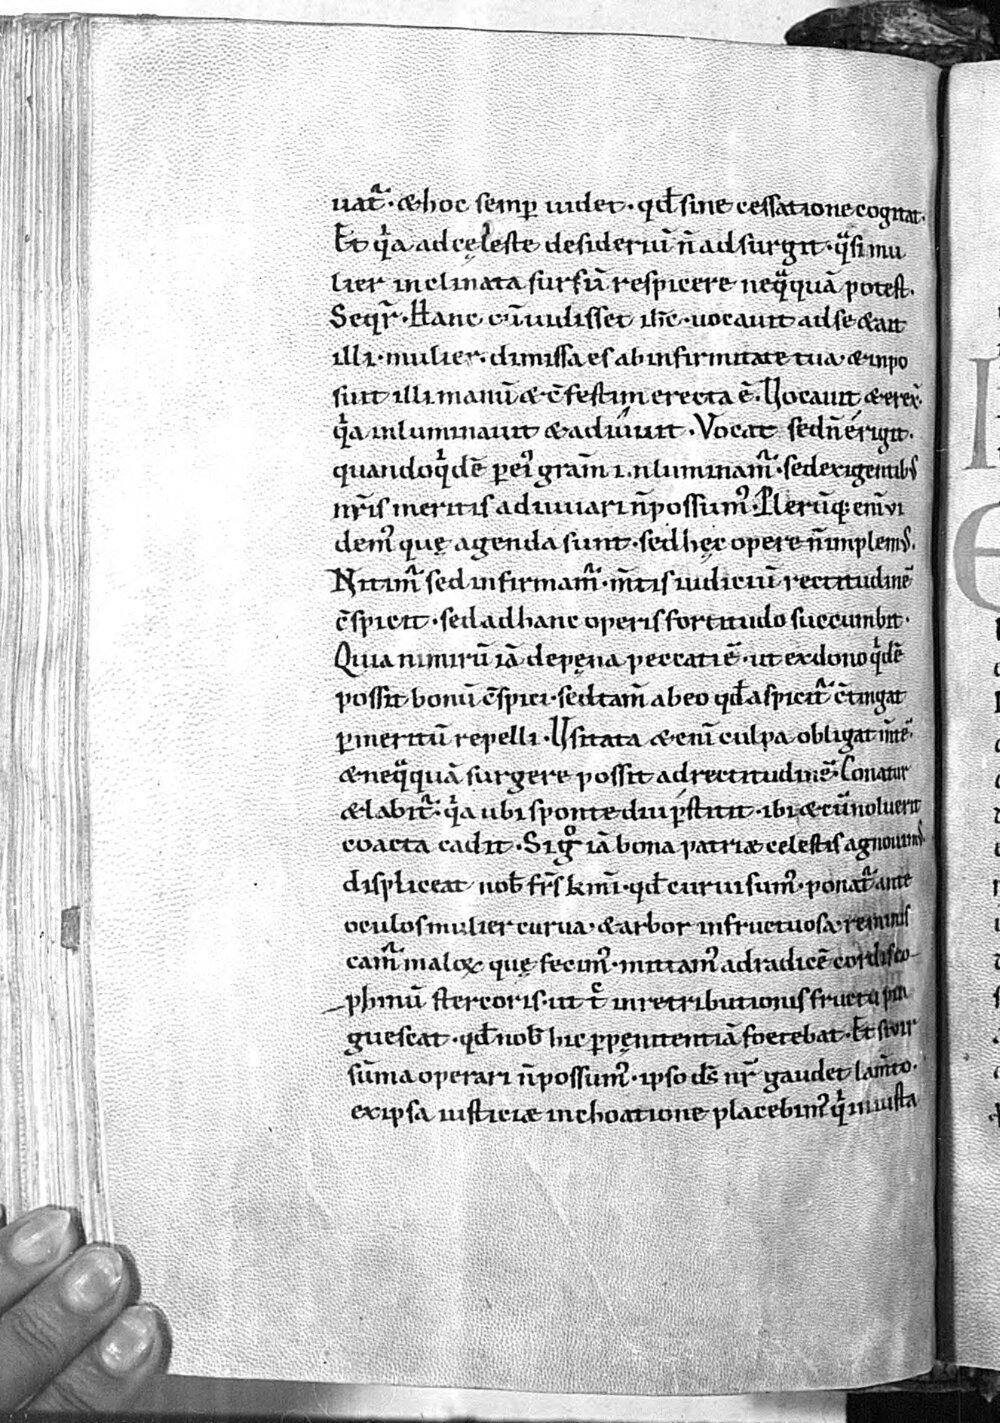 uat᷑. & hoc semp̱ uidet. qđ sine cessatione cogitat.
Et qͥa ad cęleste desideriū n̄ adsurgit. qͣsi mu
lier inclinata sursū respicere neqͣquā potest.
Seqr᷑. Hanc cū uidisset ih̄c. uocauit ad se & ait
illi. mulier. dimissa es ab infirmitate tua. & inpo
suit illi manū & c̄festim erecta ē. Uocauit & erex̄.
qͥa inluminauit & adiuuit. Vocat sed n̄ erigit.
quando qͥdē p̱ ei᷒ grām inluminam᷑. sed exigentib᷒
nr̄is meritis adiuuari n̄ possum᷒. Plerūq; enī vi
dem᷒ quę agenda sunt. sed hęc opere n̄ implem᷒.
Nitim᷑ sed infirmam᷑. m̄tis iudiciū rectitudinē
c̄spicit. sed ad hanc operis fortitudo succumbit.
Quia nimirū iā de pęna peccati ē. ut ex dono qͥdē
possit bonū c̄spici. sed tam̄ ab eo qđ aspicit᷑ c̄tingat
p̱ meritū repelli. Usitata & enī culpa obligat m̄tē.
& neqͣquā surgere possit ad rectitudinē. Conatur
& labit᷑. qͥa ubi sponte diu p̱stitit. ibi & cū noluerit
coacta cadit. Si gͦ iā bona patriæ celestis agnouim᷒.
displiceat nob̄ fr̄s km̄i. qđ curui sum᷒. ponat᷑ ante
oculos mulier curua. & arbor infructuosa. reminis
cam᷑ maloꝝ quę fecim᷒. mittam᷒ ad radicē cordis co
phinū stercoris. ut t̄c in retributionis fructū pin
guescat. qđ nob̄ hic p̱ pęnitentiā foetebat. Et si uir
sūma operari n̄ possum᷒. ipso đs nr̄ gaudet lam̄to.
ex ipsa iusticiæ inchoatione placebim᷒ qͥ iniusta